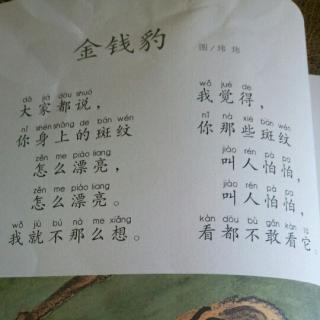 金钱豹
图/炜炜
dà jiā dōu shuō
大家都说，
nǐ shēn shàng de bān wén
你身上的斑纹
zěn me piào liang
怎么漂亮，
zěn me piào liang
怎么漂亮。
wǒ jiù bú nà me xiǎng
我就不那么想。
wǒ jué de
我觉得，
nǐ nà xiē bān wén
你那些斑纹
jiào rén pà pa
叫人怕怕，
jiào rén pà pa
叫人怕怕，
kàn dōu bù gǎn kàn tā
看都不敢看它。